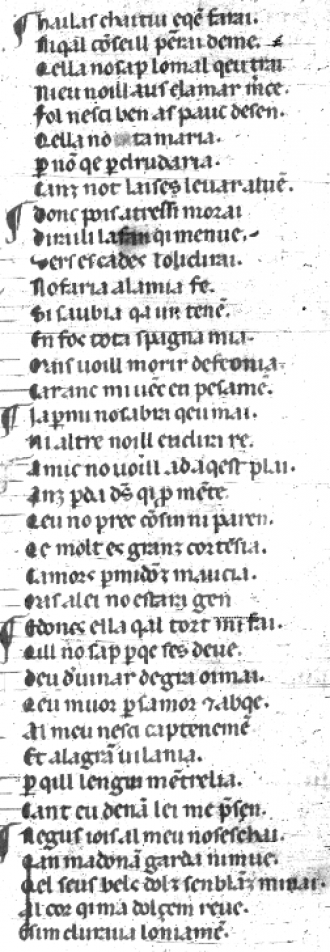 hailas chaitiu eqē farai.
Niqal cōseill pēnrai deme.
Qella nosap lomal qeu trai
Nieu noill aus clamar mce.
fol nesci ben as pauc desen.
Qella no tamaria.
p nō qe pdrudaria.
Canz not laises leuar aluē.
Donc pois atressi morai
Dirai li lafan qi menue.
Vers es cades lolidirai.
Nofaria alamia fe.
Si saubia qa un tenē.
En fos tota spagna mia.
Mais uoill morir defeonia.
Car anc mi uēc en pesamē.
Ja pmi nosabra qeu mai.
Ni altre noill endira re.
Amic no uoill ad aqest plai.
Anz pda dš qi p mēte.
Qeu no prec cōsin ni paren.
Qe molt es granz cortesia.
Camors pmidōz maucia.
Mas alei no estara gen
Edoncs ella qal tort mi fai.
Qill no sap pqe ses deue.
Deu diuinar degra oimai.
Qeu muor psamor & abqe.
Al meu nesci captenemē
Et alagrā uilania.
p qill lengua mētrelia.
Cant eu denā lei me psen.
Negus iois al meu noseschai.
Qan madonam garda nimue.
Qel seus bels dolz senblāz mi uai.
Al cor qi ma dolcem reue.
Esim duraua loniamē.